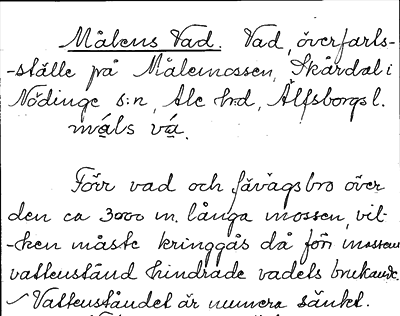 Målens Vad. Vad, överfarts-
-ställe på Målemossen, Skårdal i
Nödinge s:n, Ale h:d, Älfsborgs l.
måls vá.
Förr vad och fävägsbro över
den ca 3000 m. långa mossen, vil-
-ken måste kringgås då förr mossens
vattenstånd hindrade vadets brukande.
Vattenståndet är numera sänkt.